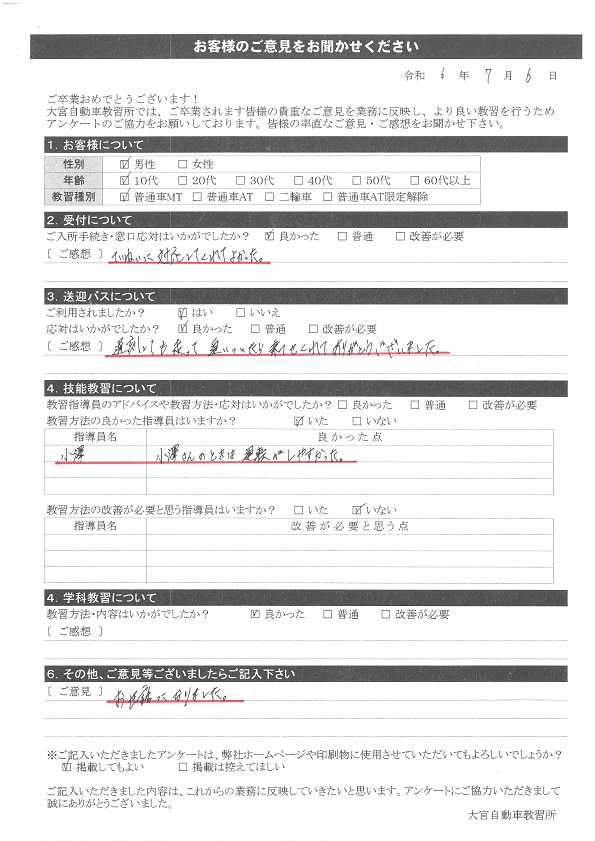 お客様のご意見をお聞かせください
令和 6 年 7 月 6 日
ご卒業おめでとうございます！
大宮自動車教習所では、ご卒業されます皆様の貴重なご意見を業務に反映し、より良い教習を行うため
アンケートのご協力をお願いしております。皆様の率直なご意見・ご感想をお聞かせ下さい。
1. お客様について
性別 ☑ 男性 □ 女性
年齢 ☑ 10代 □ 20代 □ 30代 □ 40代 □ 50代 □ 60代以上
教習種別 ☑ 普通車MT □ 普通車AT □ 二輪車 □ 普通車AT限定解除
2. 受付について
ご入所手続き・窓口応対はいかがでしたか？ ☑ 良かった □ 普通 □ 改善が必要
〔 ご感想 〕 ていねいに対応してくれてよかった。
3. 送迎バスについて
ご利用されましたか？ ☑ はい □ いいえ
応対はいかがでしたか？ ☑ 良かった □ 普通 □ 改善が必要
〔 ご感想 〕 遅刻しても走って追いついたら乗せてくれてありがとうございました。
4. 技能教習について
教習指導員のアドバイスや教習方法・応対はいかがでしたか？ □ 良かった □ 普通 □ 改善が必要
教習方法の良かった指導員はいますか？ ☑ いた □ いない
指導員名 良かった点
小澤 小澤さんのときは運転がしやすかった。
教習方法の改善が必要と思う指導員はいますか？ □ いた ☑ いない
指導員名 改善が必要と思う点
4. 学科教習について
教習方法・内容はいかがでしたか？ ☑ 良かった □ 普通 □ 改善が必要
〔 ご感想 〕
6. その他、ご意見等ございましたらご記入下さい
〔 ご意見 〕 お世話になりました。
※ご記入いただきましたアンケートは、弊社ホームページや印刷物に使用させていただいてもよろしいでしょうか？
☑ 掲載してもよい □ 掲載は控えてほしい
ご記入いただきました内容は、これからの業務に反映していきたいと思います。アンケートにご協力いただきまして
誠にありがとうございました。
大宮自動車教習所